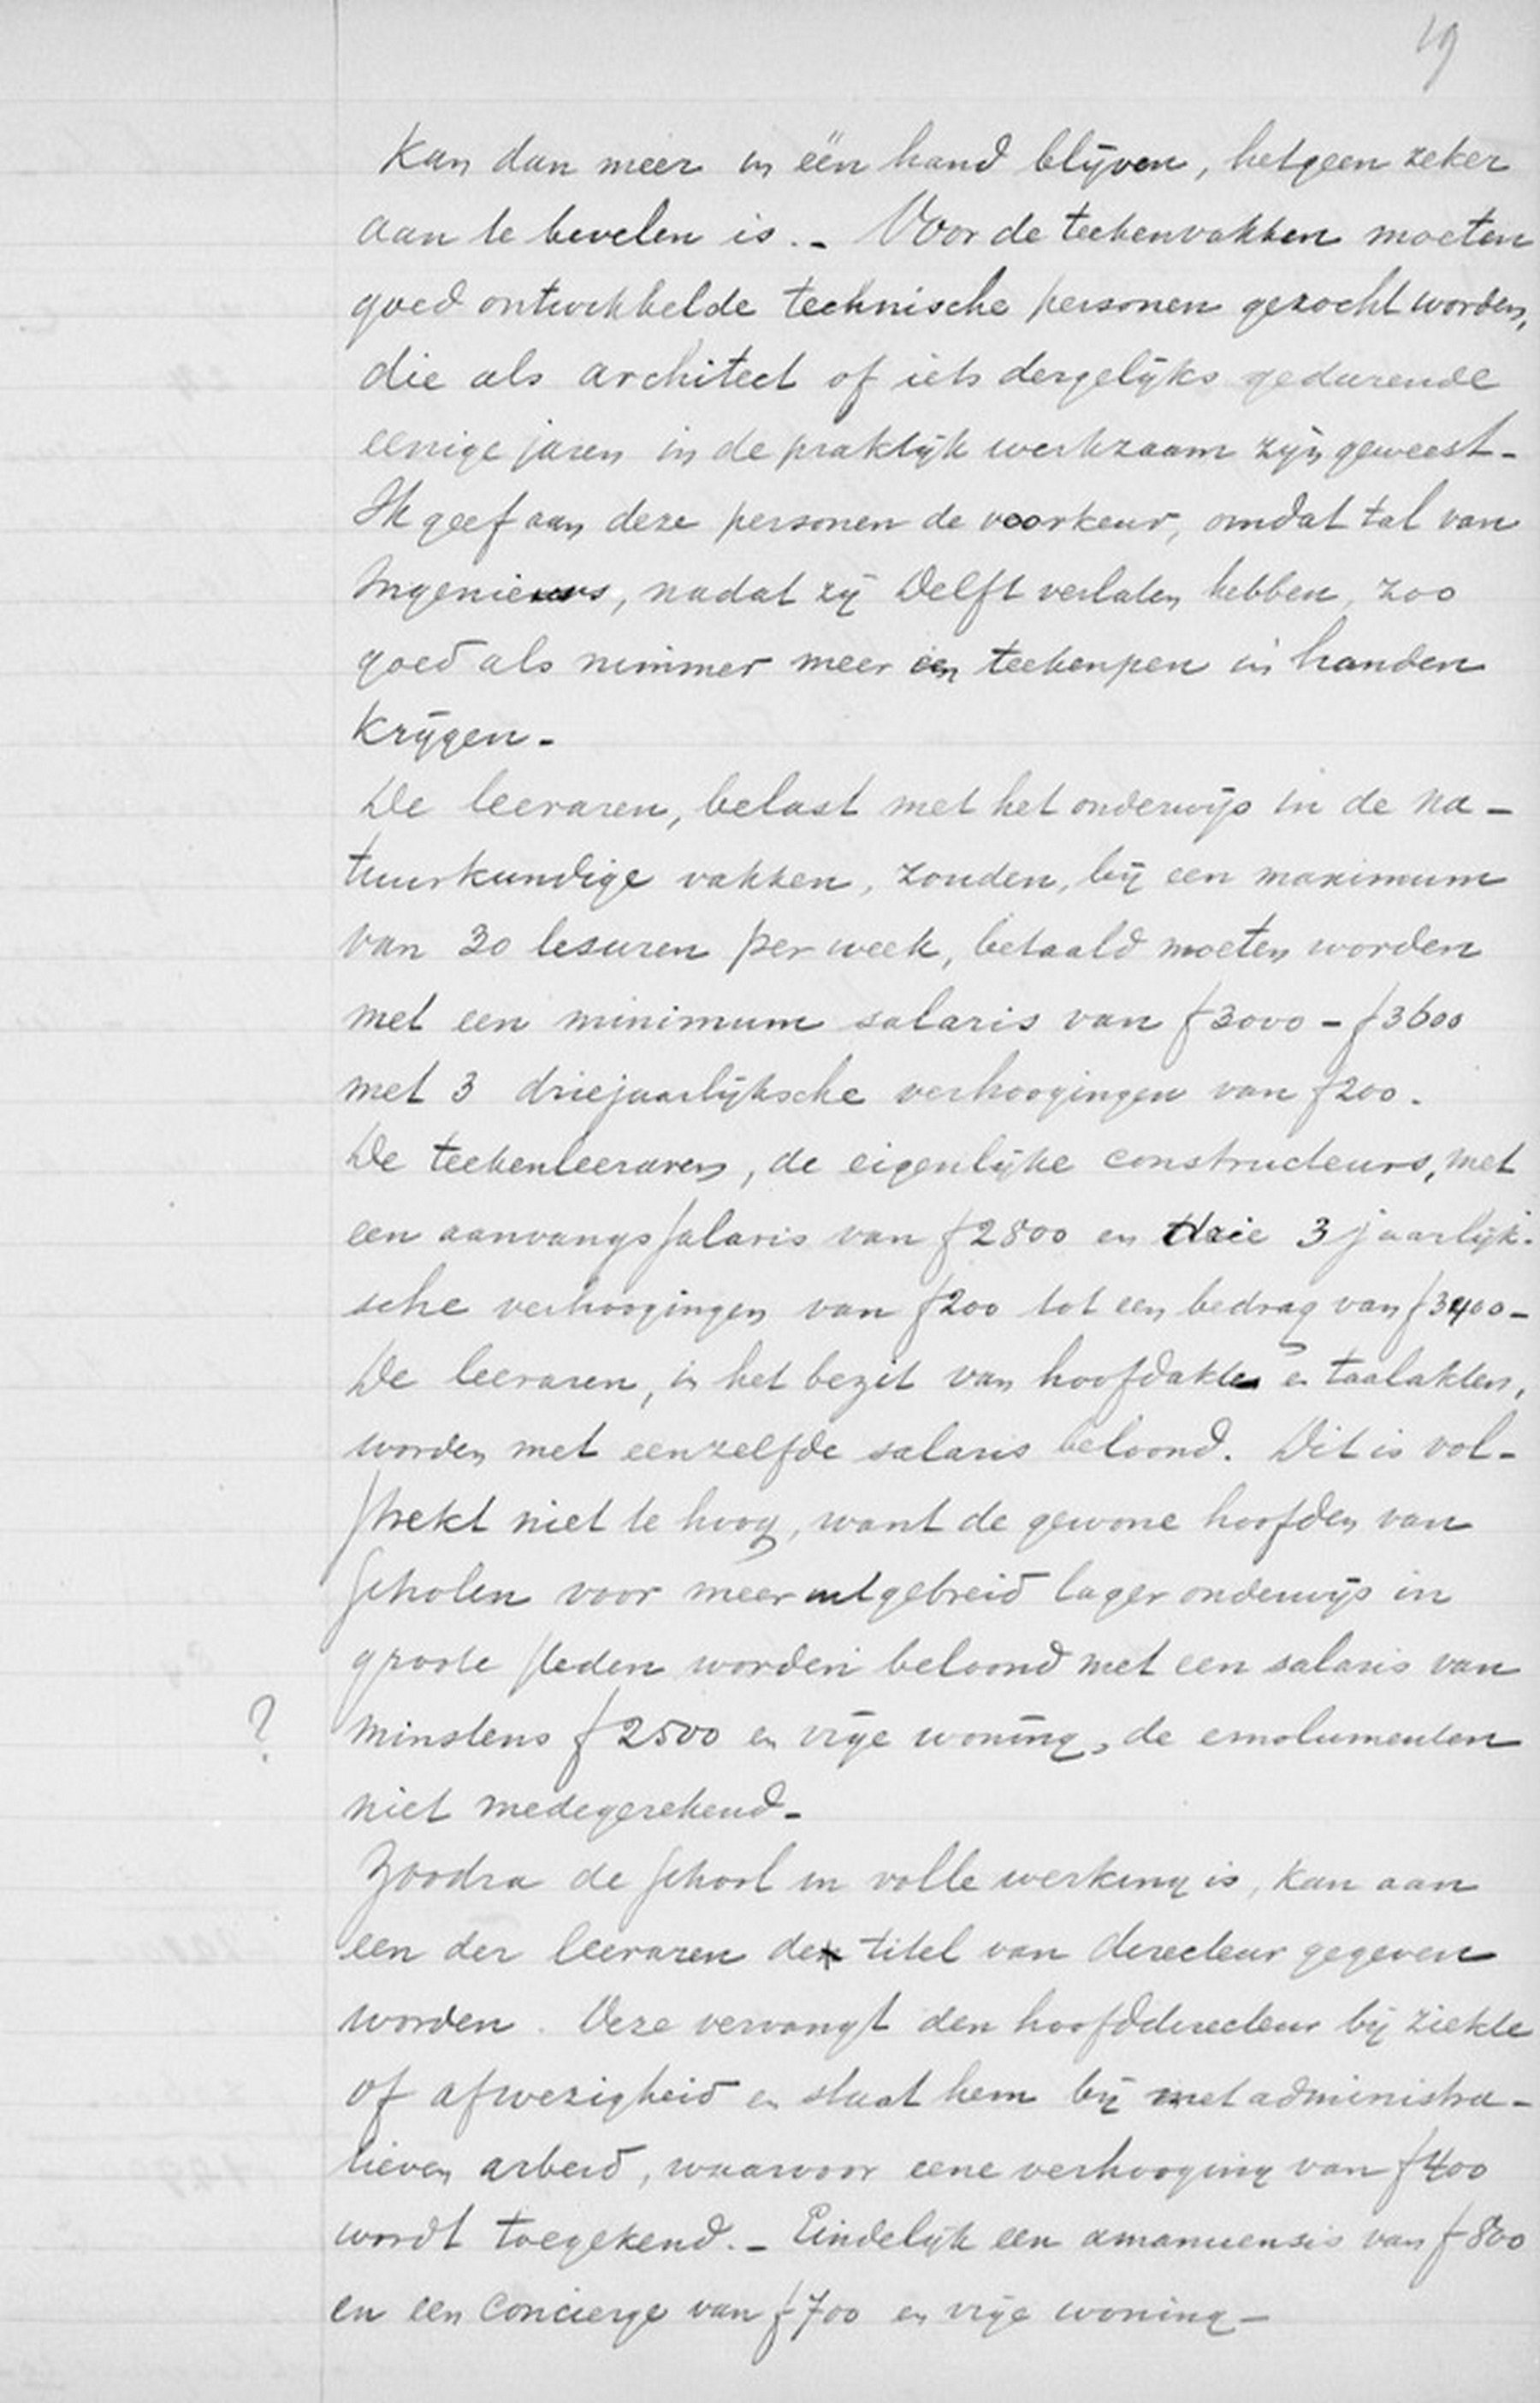 19
Kan dan meer in één hand blijven, hetgeen zeker
aan te bevelen is. - Voor de teekenvakken moeten
goed ontwikkelde technische personen gezocht worden,
die als architect of iets dergelijks gedurende
eenige jaren in de praktijk werkzaam zijn geweest -
Ik geef aan deze personen de voorkeur, omdat tal van
Ingenieurs, nadat zij Delft verlaten hebben, zoo
goed als nimmer meer een teekenpen in handen
krijgen -
De leeraren, belast met het onderwijs in de na -
tuurkundige vakken, zouden, bij een maximum
van 30 lesuren per week, betaald moeten worden
met een minimum salaris van f 3000 - f 3600
met 3 driejaarlijksche verhoogingen van f 200.
De teekenleeraren, de eigenlijke constructeurs, met
een aanvangssalaris van f 2800 en drie 3 jaarlijk-
sche verhoogingen van f 200 tot een bedrag van f 3400 -
De leeraren, in het bezit van hoofdakte en taalakten,
worden met eenzelfde salaris beloond. Dit is vol -
strekt niet te hoog, want de gewone hoofden van
scholen voor meer uitgebreid lager onderwijs in
groote steden worden beloond met een salaris van
? minstens f 2500 en vrije woning, de emolumenten
niet medegerekend -
Zoodra de school in volle werking is, kan aan
een der leeraren de titel van directeur gegeven
worden. Deze vervangt den hoofddirecteur bij ziekte
of afwezigheid en staat hem bij met administra -
tieven arbeid, waarvoor eene verhooging van f 400
wordt toegekend. - Eindelijk een amanuensis van f 800
en een concierge van f 700 en vrije woning -